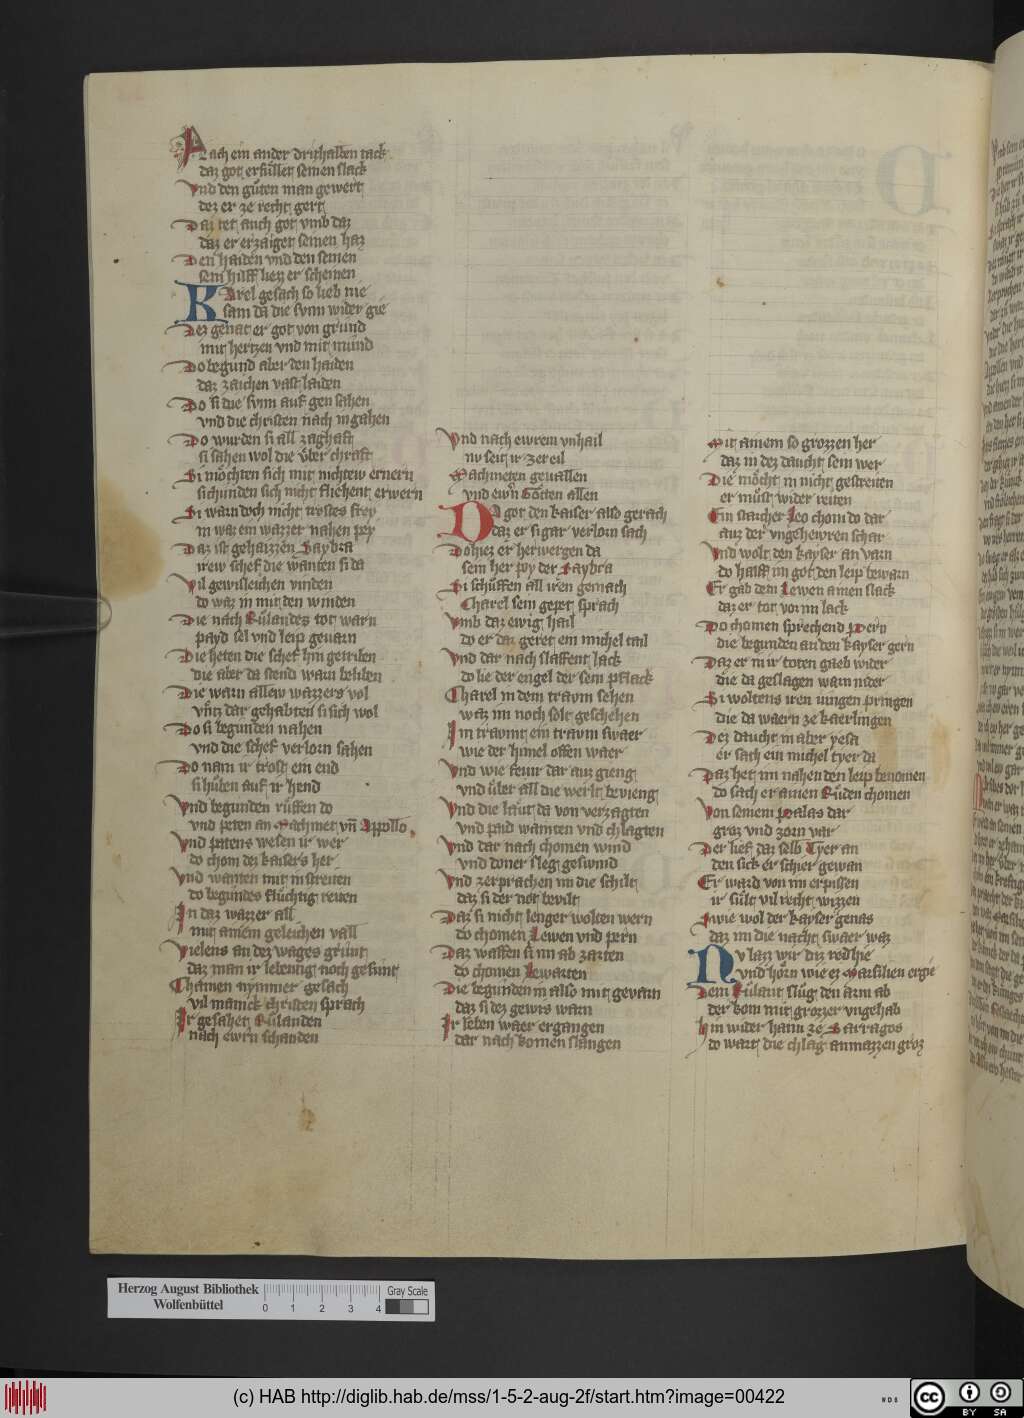 Nach ein ander drithalben tack
daz got erfüllet seinen slack
Vnd den güten man gewert
dez er ze recht gert
Daz tet auch got vmb daz
daz er erzaiget seinen haz
Den haiden vnd den seinen
sein hilff liez er scheinen
Karel gesach so lieb nie
sam da die svnn wider gie
Dez genat er got von grund
mit hertzen vnd mit mund
Do begund aber den haiden
daz zaichen vast laiden
Do si die svnn auf gen sahen
vnd die christen nach in gahen
Do wurden si all zaghaft
si sahen wol die über chraft
Si möchten sich mit nichtew ernern
si chunden sich nicht fliehent erwern
Si warn doch nicht trostes frey
in waz ein wazzer nahen pey
Daz ist gehaizzen Saybra
irew schef die wanten si da
Vil gewisleichen vinden
do waz in mit den winden
Die nach Rülandes tot warn
payd sel vnd leip geuarn
Die heten die schef hin getriben
die aber da stend warn beliben
Die warn allew wazzers vol
vntz dar gehabten si sich wol
Do si begunden nahen
vnd die schef verlorn sahen
Do nam ir trost ein end
si hüben auf ir hend
Vnd begunden rüffen do
vnd peten an Machmet vn Appollo
Vnd patens wesen ir wer
do chom dez kaisers her
Vnd wanten mit in streiten
do begundes flüchtig reiten
In daz wazzer all
mit ainem geleichen vall
Vielens an dez wages grunt
daz man ir lebentig noch gesunt
Chainen nymmer gesach
vil manick christen sprach
Ir gesahet Rülanden
nach ewrn schanden
Vnd nach ewrem vnhail
nv seit ir ze teil
Machmeten geuallen
vnd ewrn Götten allen
Da got den kaiser also gerach
daz er si gar verlorn sach
Do hiez er herwergen da
sein her pey der Saybra
Si schüffen all iren gemach
Charel sein gepet sprach
Vmb daz ewig hail
do er daz getet ein michel tail
Vnd dar nach slaffent lack
do lie der engel der sein pflack
Charel in dem travm sehen
waz im noch solt geschehen
Im travmt ein travm swaer
wie der himel offen waer
Vnd wie feur dar auz gieng
vnd über all die werlt bevieng
Vnd die läut da von verzagten
vnd paid wainten vnd chlagten
Vnd dar nach chomen wind
vnd doner sleg geswind
Vnd zerprachen im die schilt
daz si der not bevilt
Daz si nicht lenger wolten wern
do chomen Lewen vnd pern
Daz waffen si im ab zarten
do chomen Lewarten
Die begunden in also mit gevarn
daz si dez gewis warn
Ir leben waer ergangen
dar nach komen slangen
Mit ainem so grozzen her
daz in dez daucht sein wer
Die möcht in nicht gestreiten
er müst wider reiten
Ein starcher Leo chom do dar
auz der vngehewren schar
Vnd wolt den kayser an varn
do halff im got den leip bewarn
Er gab dem Lewen ainen slack
daz er tot vor im lack
Do chomen sprechend Pern
die begunden an den kayser gern
Daz er in ir toten gaeb wider
die da geslagen warn nider
Si woltens iren mingen pringen
die da waern ze kaerlingen
Dez daucht in aber yesa
er sach ein michel tyer da
Daz het im nahen den leip benomen
do sach er ainen Rüden chomen
Von seinem Palas dar
groz vnd zorn var
Der lief daz selb Tyer an
den sick er schier gewan
Er ward von im erpissen
ir sült vil recht wizzen
Swie wol der kayser genas
daz im die nacht swaer waz
Nv lazz wir diz red hie
vnd hörn wie ez Marsilien ergie
Dem Rülant slüg den arm ab
der kom mit grozzer vngehab
Hin wider haim ze Sarragos
do wart die chlag anmazzen groz
Herzog August Bibliothek
Wolfenbüttel
0 1 2 3 4
Gray Scale
(c) HAB http://diglib.hab.de/mss/1-5-2-aug-2f/start.htm?image=00422
WDB
cc BY SA